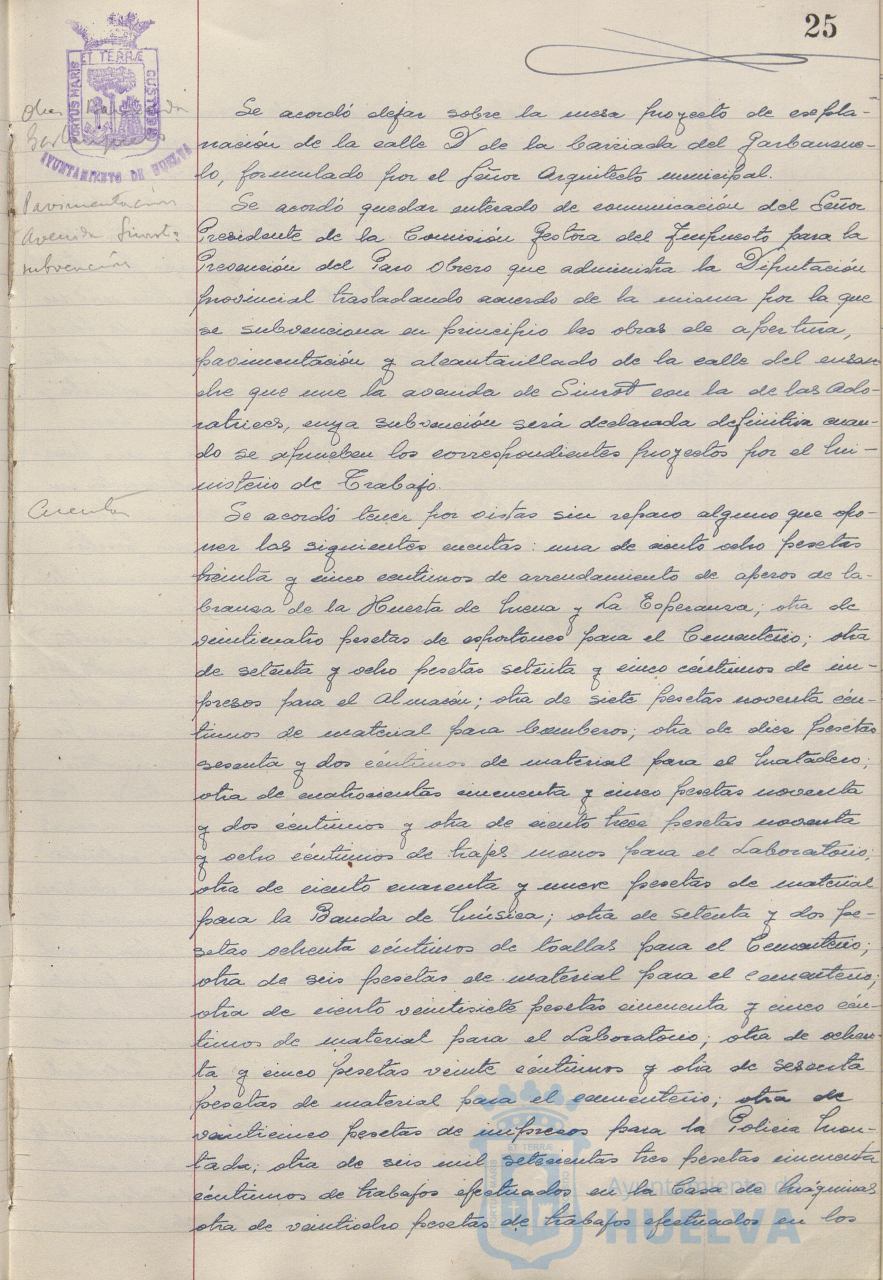 25
PORTUS MARIS ET TERRÆ CUSTODIA
AYUNTAMIENTO DE HUELVA
Se acordó dejar sobre la mesa proyecto de expla-
nación de la calle D de la barriada del Garbanzue-
lo, formulado por el Señor Arquitecto municipal.
Pavimentación
Avenida Siurot:
subvención
Se acordó quedar enterado de comunicación del Señor
Presidente de la Comisión Gestora del Impuesto para la
Prevención del Paro Obrero que administra la Diputación
provincial trasladando acuerdo de la misma por la que
se subvenciona en principio las obras de apertura,
pavimentación y alcantarillado de la calle del ensan-
che que une la avenida de Siurot con la de las Ado-
ratrices, cuya subvención será declarada definitiva cuan-
do se aprueben los correspondientes proyectos por el Mi-
nisterio de Trabajo.
Cuentas
Se acordó tener por vistas sin reparo alguno que opo-
ner las siguientes cuentas: una de ciento ocho pesetas
treinta y cinco centimos de arrendamiento de aperos de la-
branza de la Huerta de Mena y La Esperanza; otra de
veinticuatro pesetas de esportones para el Cementerio; otra
de setenta y ocho pesetas setenta y cinco céntimos de im-
presos para el Almacén; otra de siete pesetas noventa cén-
timos de material para bomberos; otra de diez pesetas
sesenta y dos céntimos de material para el Matadero;
otra de cuatrocientas cincuenta y cinco pesetas noventa
y dos céntimos y otra de ciento trece pesetas noventa
y ocho céntimos de trajes monos para el Laboratorio;
otra de ciento cuarenta y nueve pesetas de material
para la Banda de Música; otra de setenta y dos pe-
setas ochenta céntimos de toallas para el Cementerio;
otra de seis pesetas de material para el cementerio;
otra de ciento veintisiete pesetas cincuenta y cinco cén-
timos de material para el Laboratorio; otra de ochen-
ta y cinco pesetas veinte céntimos y otra de sesenta
pesetas de material para el cementerio; otra de
veinticinco pesetas de impresos para la Policia Mon-
tada; otra de seis mil setecientas tres pesetas cincuenta
céntimos de trabajos efectuados en la Casa de Máquinas
otra de veintiocho pesetas de trabajos efectuados en los
Ayuntamiento de
HUELVA